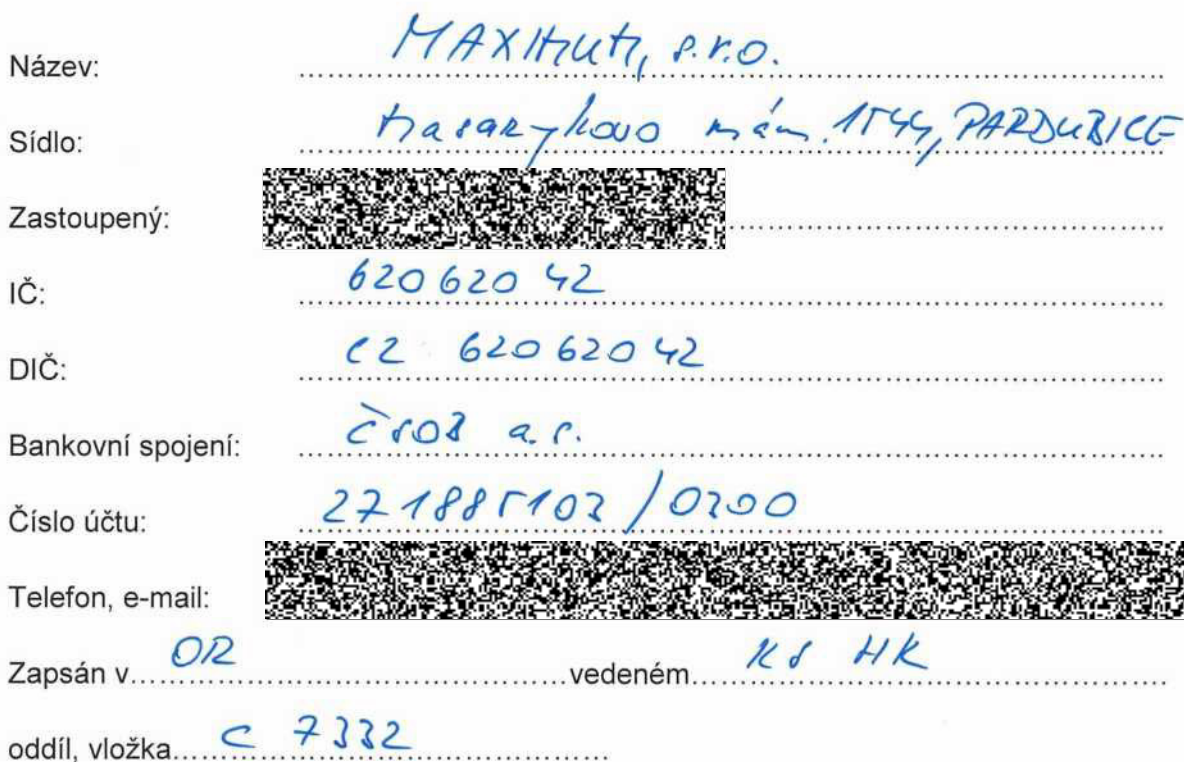 Název: MAXIMUM, s.r.o.
Sídlo: Masarykovo nám. 1544, PARDUBICE
Zastoupený:
IČ: 620 620 42
DIČ: CZ 620 620 42
Bankovní spojení: ČSOB a.s.
Číslo účtu: 271885103 /0300
Telefon, e-mail:
Zapsán v OR vedeném KS HK
oddíl, vložka C 7332